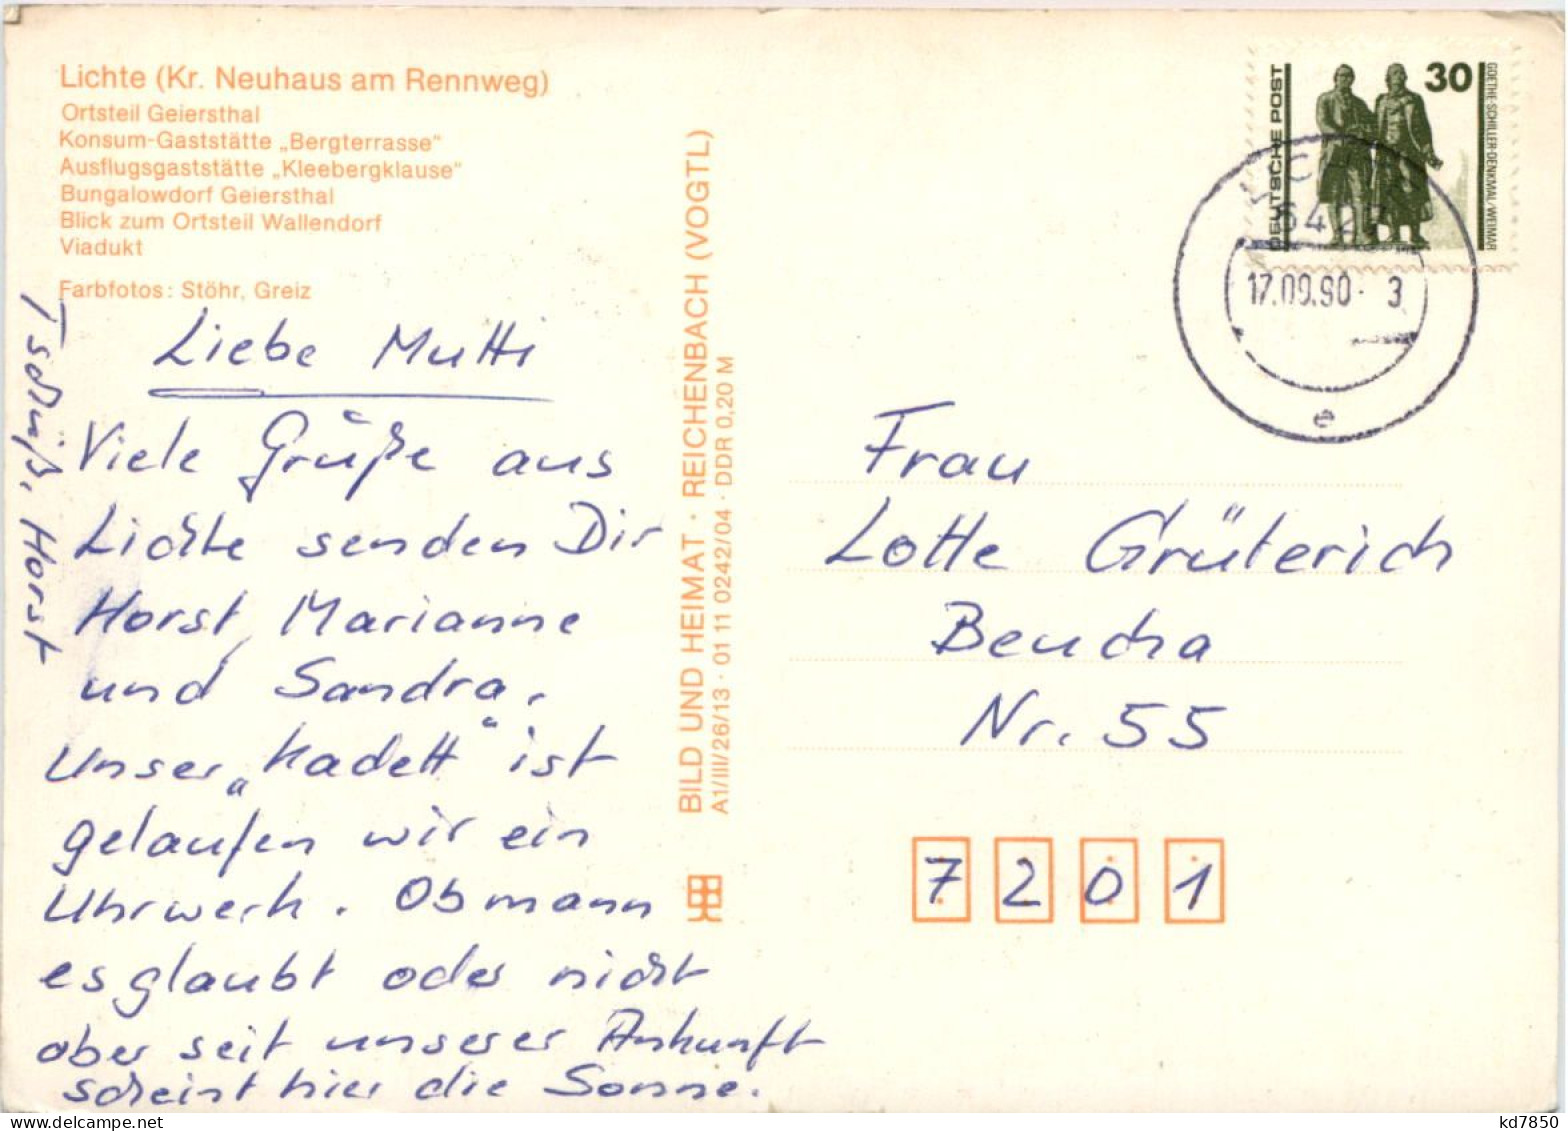 Lichte (Kr. Neuhaus am Rennweg)
Ortsteil Geiersthal
Konsum-Gaststätte „Bergterrasse“
Ausflugsgaststätte „Kleebergklause“
Bungalowdorf Geiersthal
Blick zum Ortsteil Wallendorf
Viadukt
Farbfotos: Stöhr, Greiz
Liebe Mutti
Viele Grüße aus
Lichte senden Dir
Horst, Marianne
und Sandra.
Unser „Kadett“ ist
gelaufen wir ein
Uhrwerk. Ob mann
es glaubt oder nicht
aber seit unserer Ankunft
scheint hier die Sonne.
Tschüß, Horst
BILD UND HEIMAT · REICHENBACH (VOGTL)
A1/III/26/13 · 01 11 0242/04 · DDR 0,20 M
DEUTSCHE POST
30
GOETHE-SCHILLER-DENKMAL/WEIMAR
17.09.90- 3
e
Frau
Lotte Grüterich
Beucha
Nr. 55
7201
kd7850